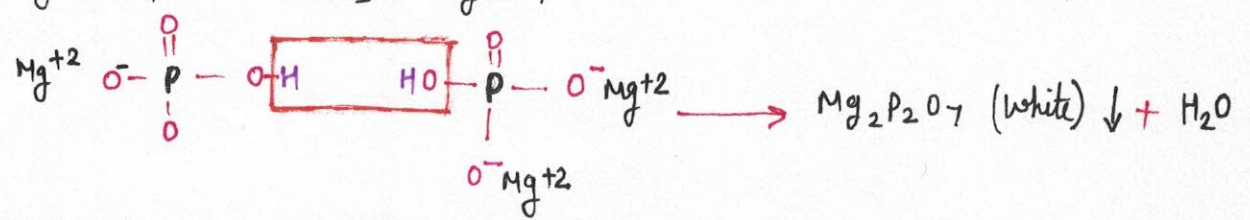 O O
Mg+2 O⁻ – P – O–H HO – P – O⁻ Mg+2 ⟶ Mg₂P₂O₇ (white) ↓ + H₂O
O O⁻ Mg+2